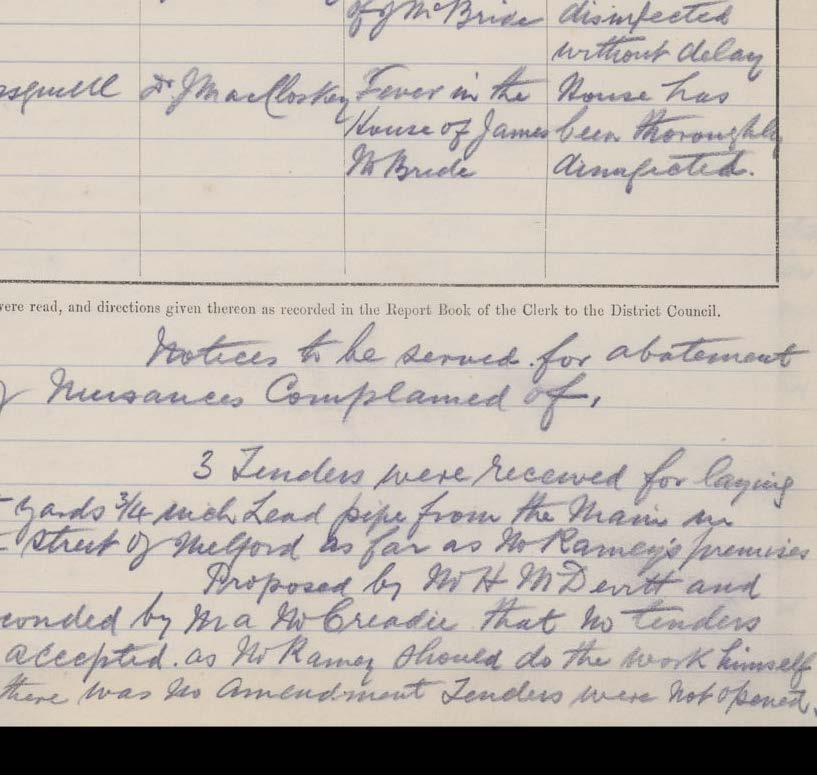 of J McBride disinfected
without delay
Dr J MacCloskey Fever in the House has
House of James been thoroughly
McBride disinfected.
were read, and directions given thereon as recorded in the Report Book of the Clerk to the District Council.
Notices to be served for abatement
Nuisances Complained of.
3 Tenders were received for laying
yards 3/4 inch Lead pipe from the Main in
Street of Milford as far as Mr Rameys premises
Proposed by Mr H McDevitt and
conded by Mr A McCreadie that no tenders
accepted. as Mr Ramey should do the work himself
there was no amendment Tenders were not opened.